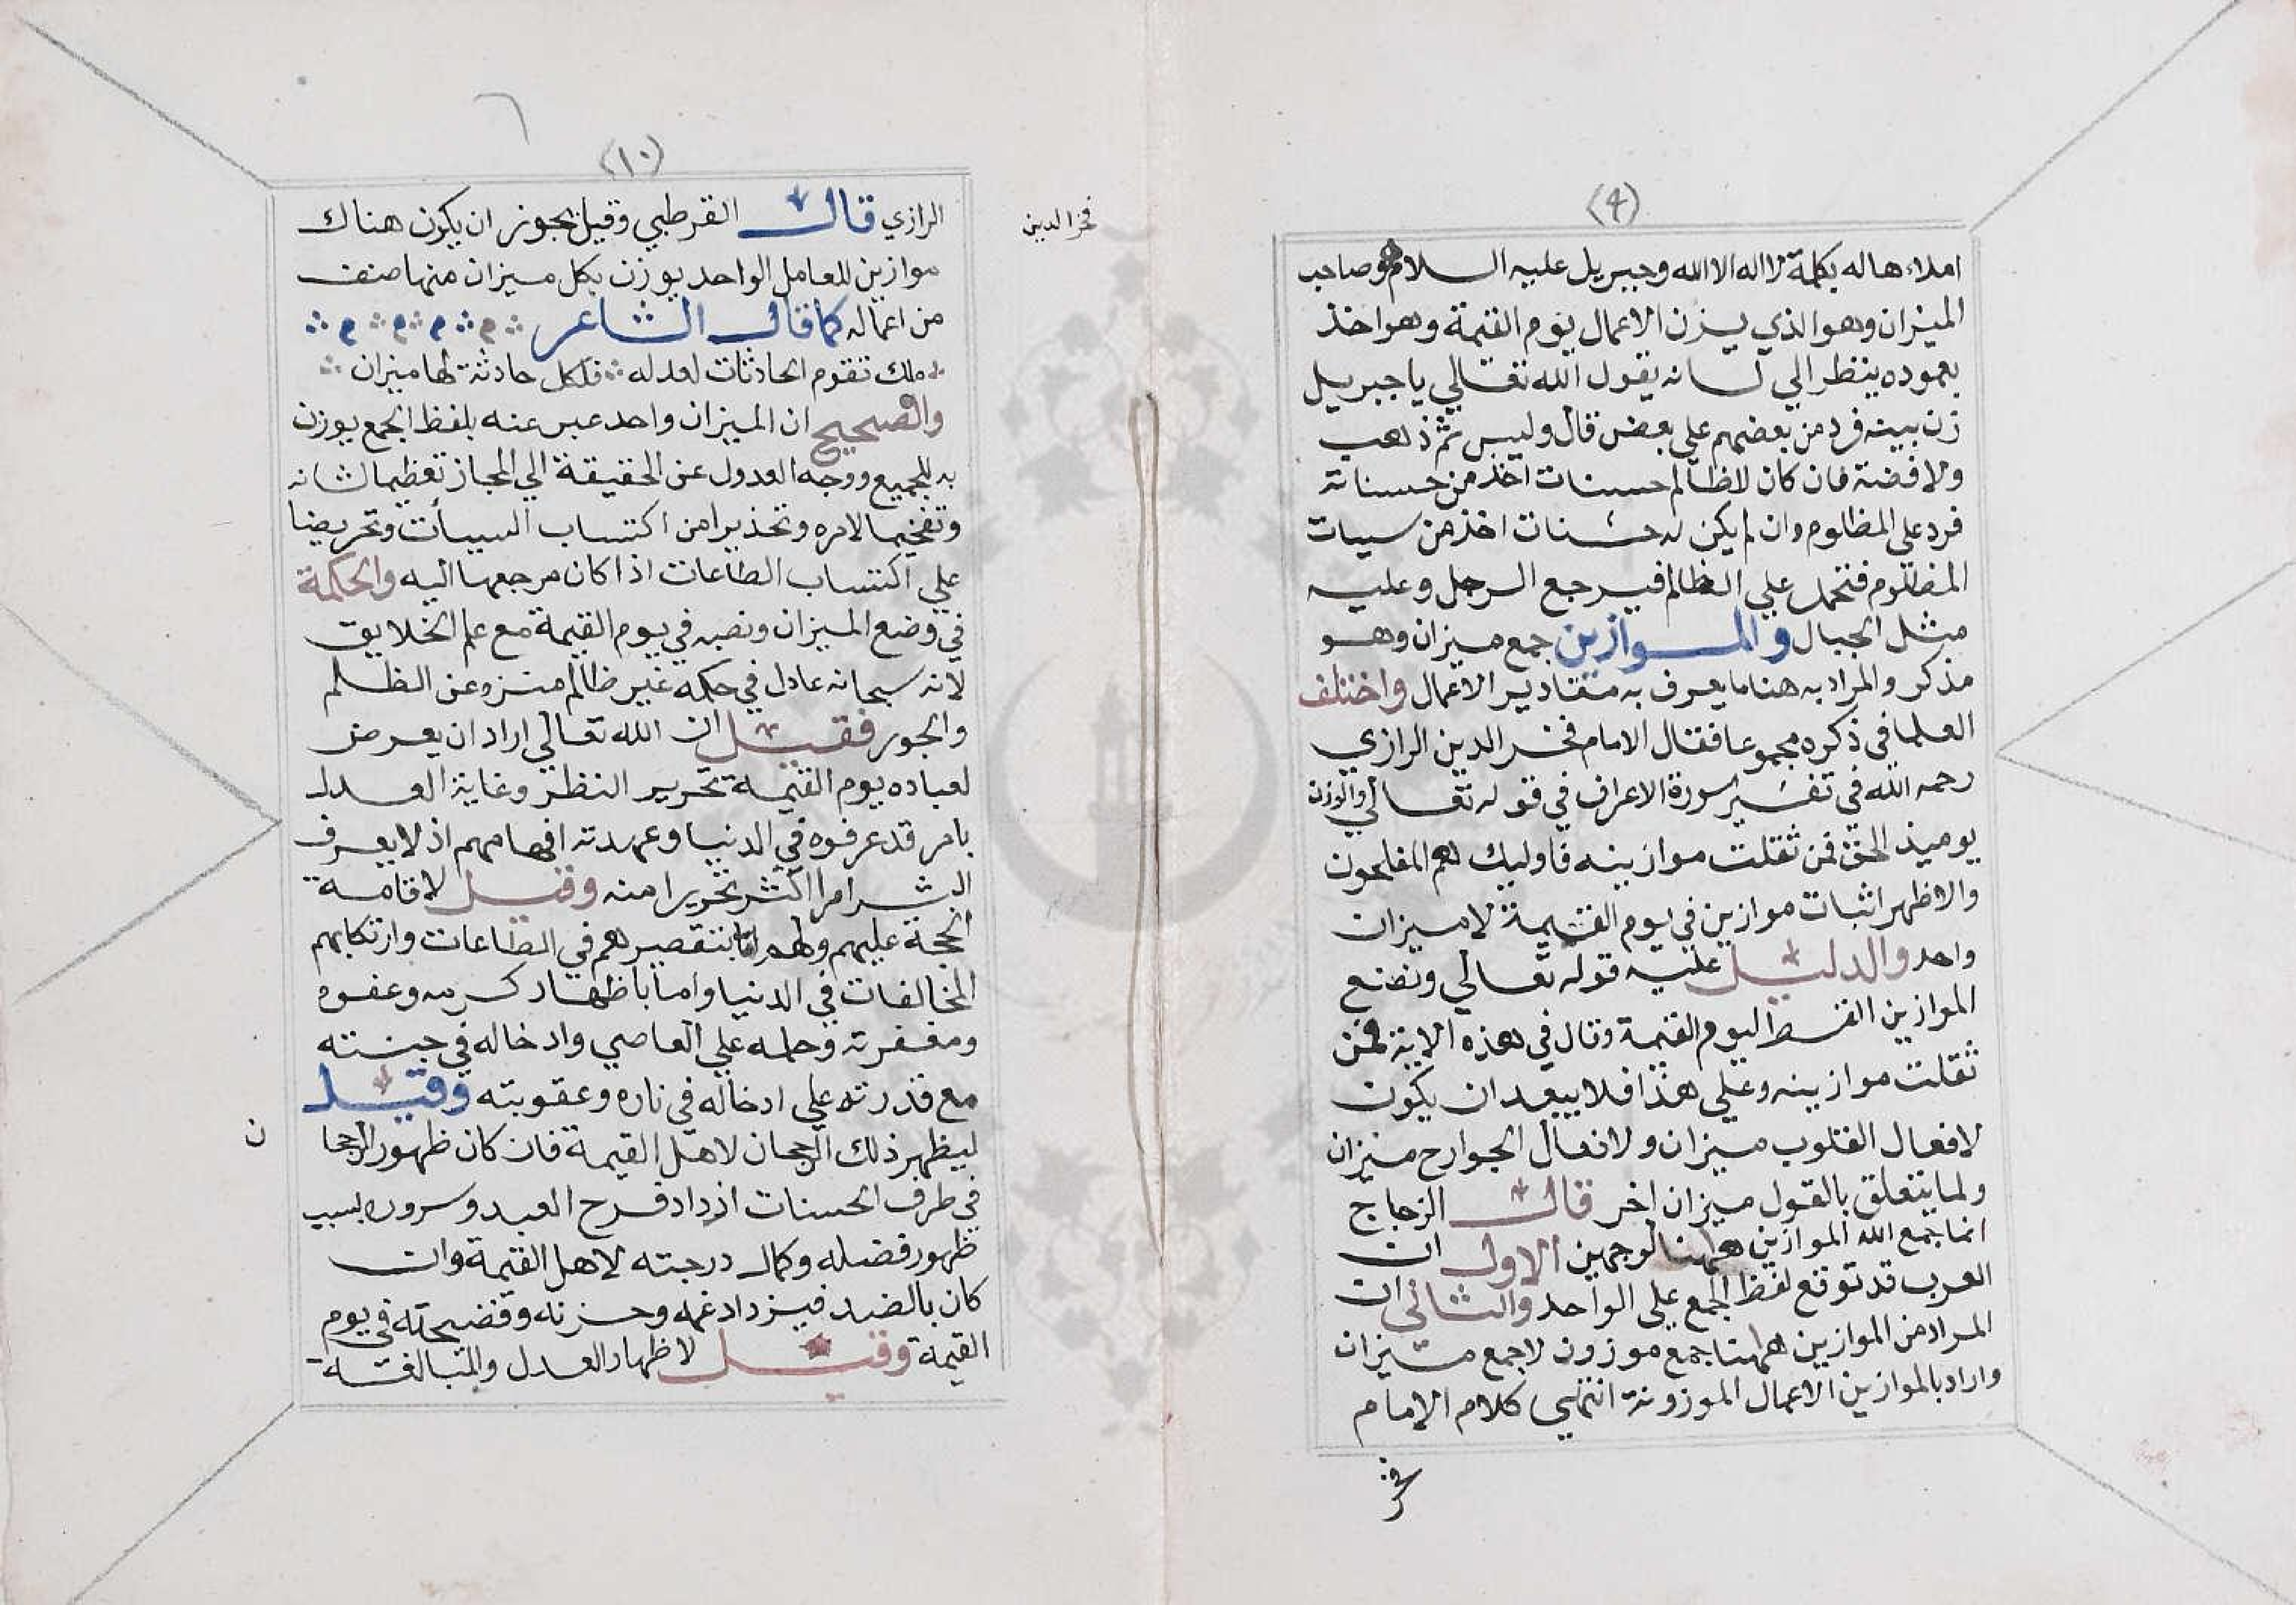 (٩)
املاءها له بكلمة لا اله الا الله وجبريل عليه السلام هو صاحب
الميزان وهو الذي يزن الاعمال يوم القيمة وهو اخذ
بعموده ينظر الي لسانه يقول الله تعالي يا جبريل
زن بينهم فرد من بعضهم علي بعض قال وليس ثم ذهب
ولا فضة فان كان للظالم حسنات اخذ من حسناته
فرد علي المظلوم وان لم يكن له حسنات اخذ من سيات
المظلوم فتحمل علي الظالم فيرجع الرجل وعليه
مثل الجبال والموازين جمع ميزان وهو
مذكر والمراد به هنا ما يعرف به مقادير الاعمال واختلف
العلما في ذكره مجموعا فقال الامام فخر الدين الرازي
رحمه الله في تفسير سورة الاعراف في قوله تعالي والوزن
يوميذ الحق فمن ثقلت موازينه فاوليك هم المفلحون
والاظهر اثبات موازين في يوم القيمة لا ميزان
واحد والدليل عليه قوله تعالي ونضع
الموازين القسط ليوم القيمة وقال في هذه الاية فمن
ثقلت موازينه وعلي هذا فلا يبعد ان يكون
لافعال القلوب ميزان ولافعال الجوارح ميزان
ولما يتعلق بالقول ميزان اخر قال الزجاج
انما جمع الله الموازين ههنا لوجهين الاول ان
العرب قد توقع لفظ الجمع علي الواحد والثاني ان
المراد من الموازين ههنا جمع موزون لا جمع ميزان
واراد بالموازين الاعمال الموزونة انتهي كلام الامام
فخر
(١٠)
فخر الدين
الرازي قال القرطبي وقيل يجوز ان يكون هناك
موازين للعامل الواحد يوزن بكل ميزان منها صنف
من اعماله كما قال الشاعر
ملك تقوم الحادثات لعدله فلكل حادثة لها ميزان
والصحيح ان الميزان واحد عبر عنه بلفظ الجمع يوزن
به للجميع ووجه العدول عن الحقيقة الي المجاز تعظيما لشانه
وتفخيما لامره وتحذيرا من اكتساب السيأت وتحريضا
علي اكتساب الطاعات اذا كان مرجعها اليه والحكمة
في وضع الميزان ونصبه في يوم القيمة مع علم الخلايق
لانه سبحانه عادل في حكمه غير ظالم منزه عن الظلم
والجور فقيل ان الله تعالي اراد ان يعرض
لعباده يوم القيمة تحرير النظر وغاية العدل
بامر قد عرفوه في الدنيا وعهدته افهامهم اذ لا يعرف
البشر امرا اكثر تحريرا منه وقيل لاقامة
الحجة عليهم ولهم اما بتقصيرهم في الطاعات وارتكابهم
المخالفات في الدنيا واما باظهار كرمه وعفوه
ومغفرته وحلمه علي العاصي وادخاله في جنته
مع قدرته علي ادخاله في ناره وعقوبته وقيل
ليظهر ذلك الرجحان لاهل القيمة فان كان ظهور الرجحا
ن
في طرف الحسنات ازداد فرح العبد وسروره بسبب
ظهور فضله وكمال درجته لاهل القيمة وان
كان بالضد فيزداد غمه وحزنه وفضيحته في يوم
القيمة وقيل لاظهار العدل والمبالغة